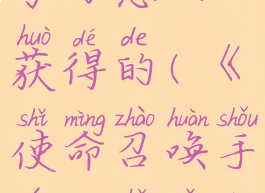 huò dé de
获得的(《
shǐ mìng zhào huàn shǒu
使命召唤手